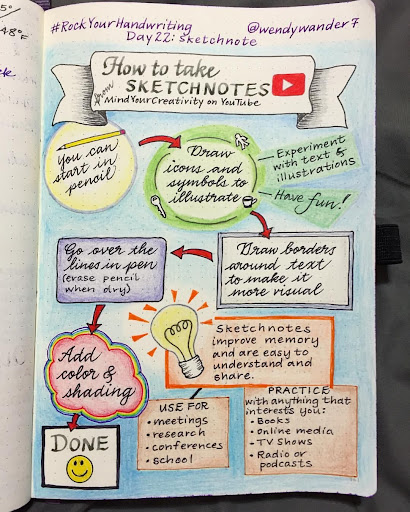 #RockYourHandwriting @wendywander7
Day 22: sketchnote
How to take
SKETCHNOTES
from MindYourCreativity on YouTube
you can
start in
pencil
Draw
icons and
symbols to
illustrate
Experiment
with text &
illustrations
Have fun!
Draw borders
around text
to make it
more visual
Go over the
lines in pen
(erase pencil
when dry)
Add
color &
shading
DONE
Sketchnotes
improve memory
and are easy to
understand and
share.
USE FOR
• meetings
• research
• conferences
• school
PRACTICE
with anything that
interests you:
• Books
• Online media
• TV Shows
• Radio or
podcasts